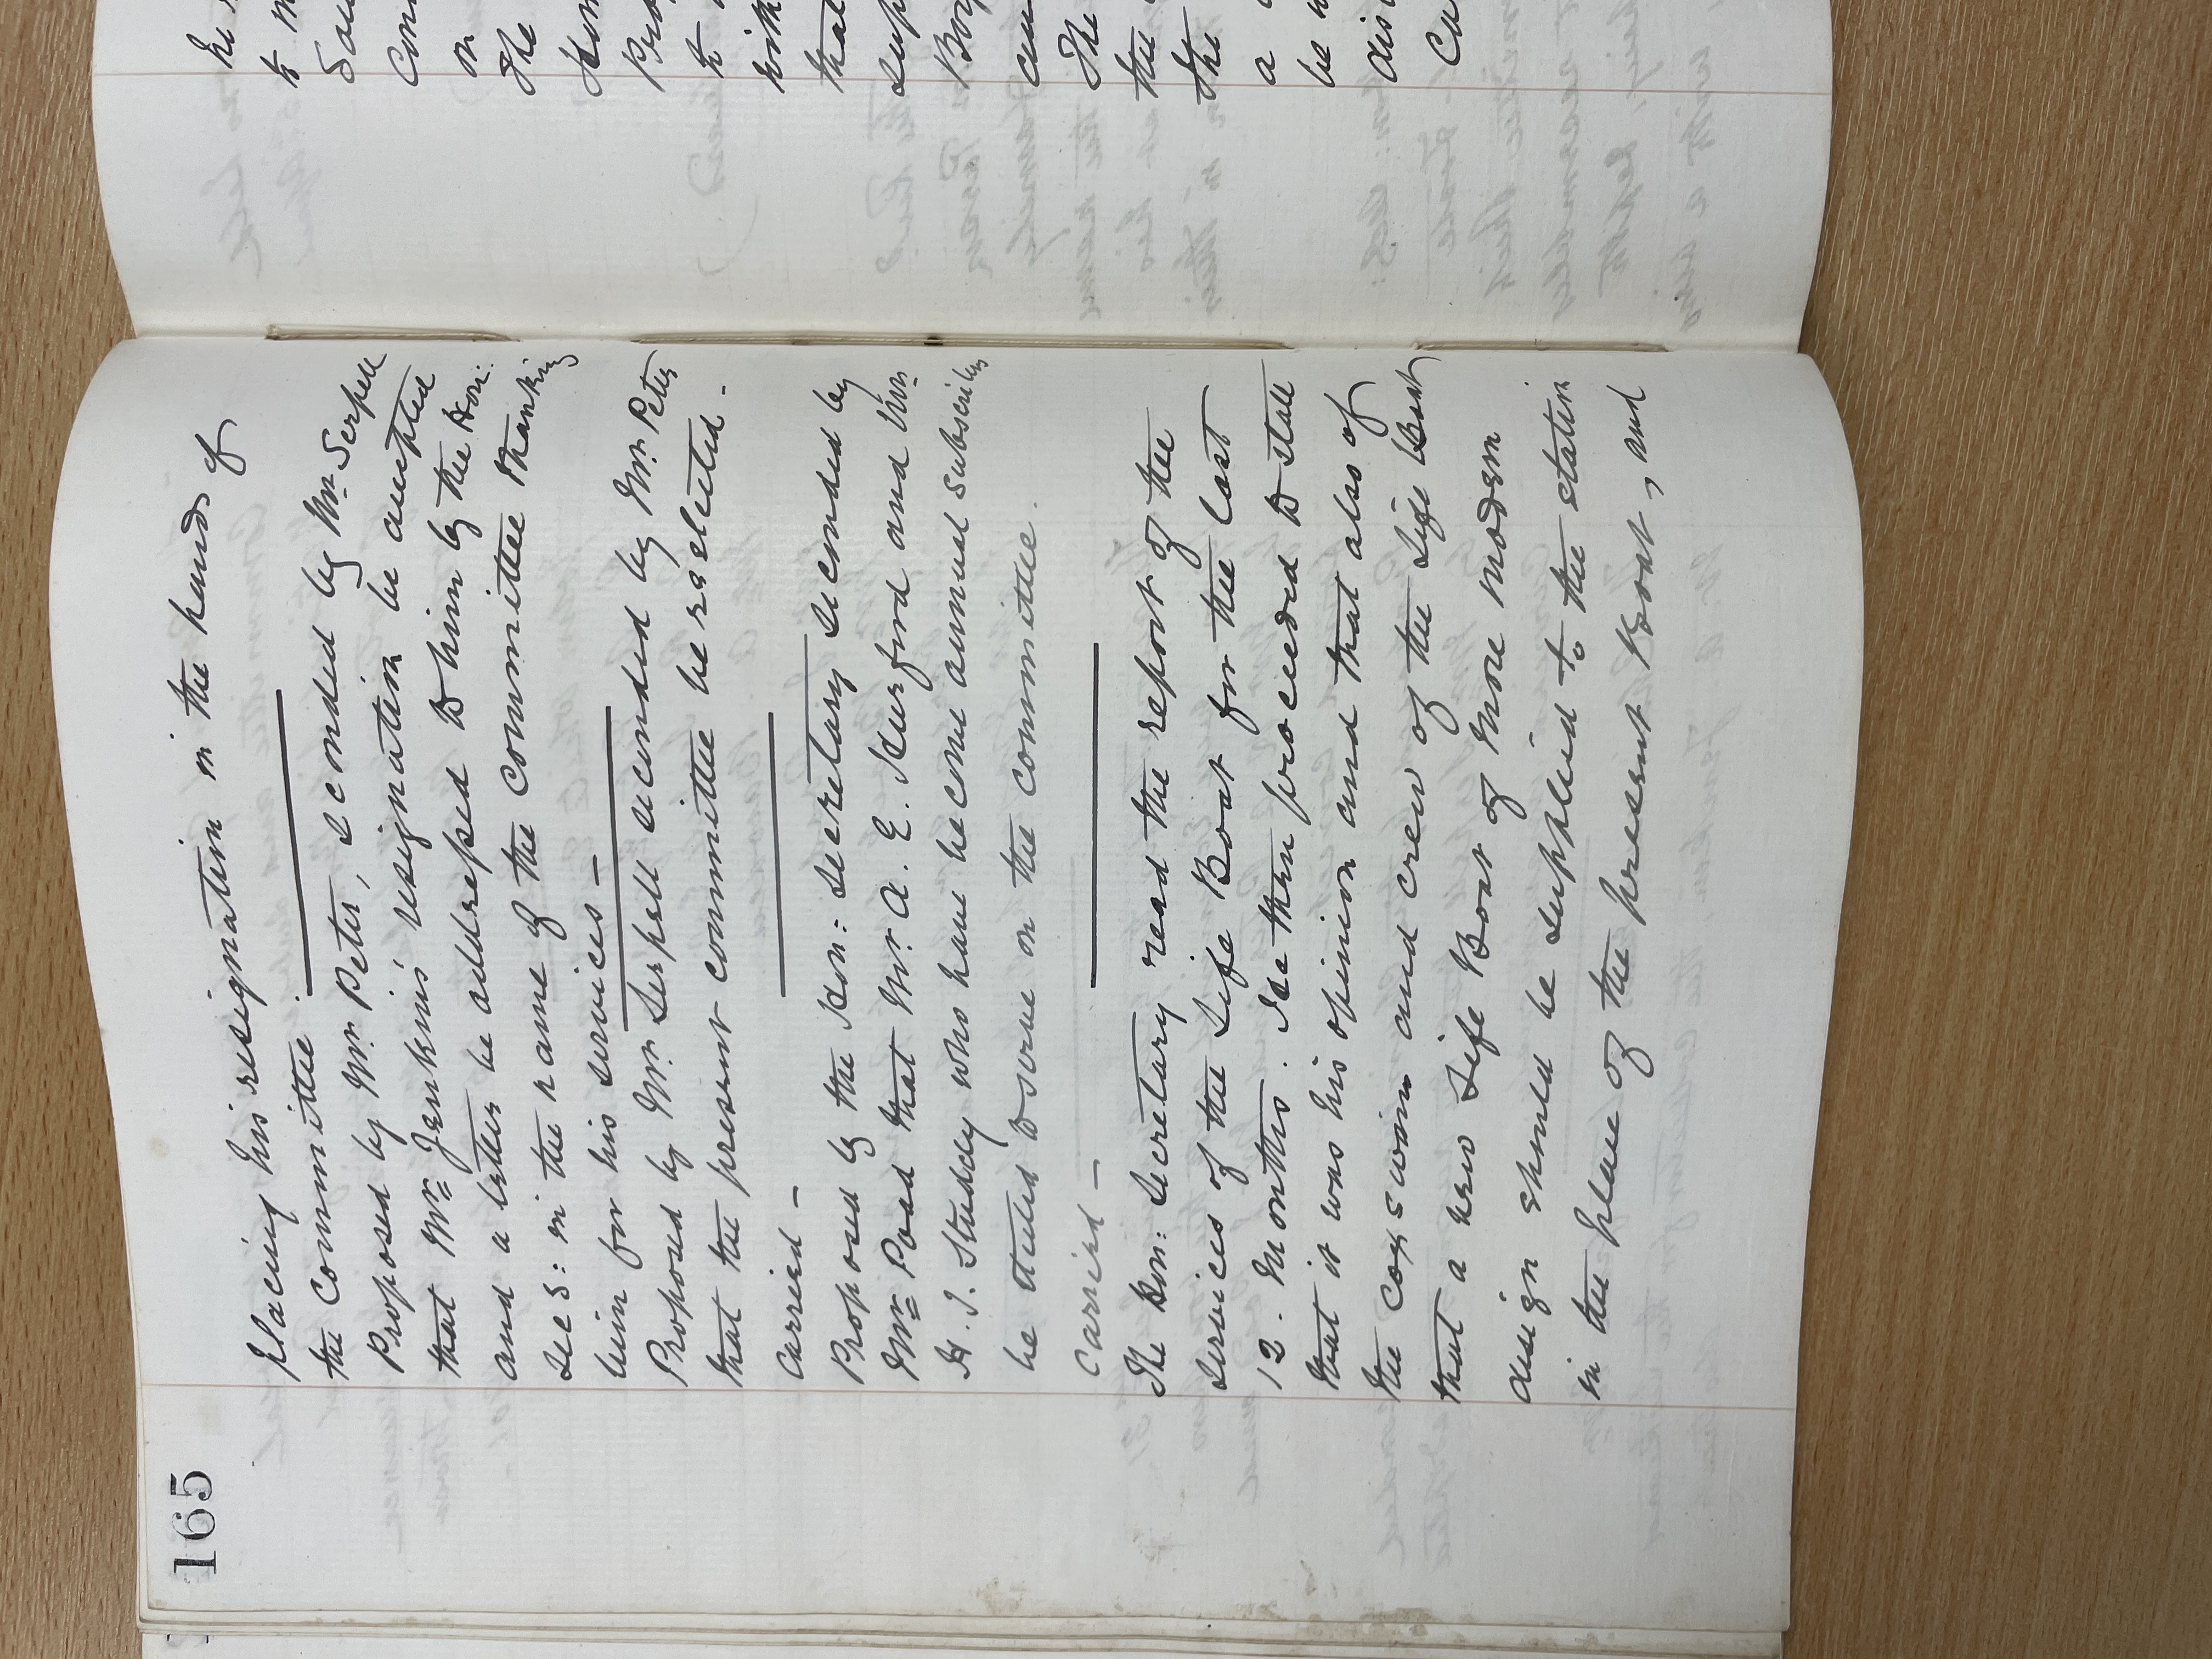 165
placing his resignation in the hands of
the Committee.
Proposed by Mr. Peter, seconded by Mr. Serpell
that Mr. Jenkins' resignation be accepted
and a letter be addressed to him by the Hon:
Sec: in the name of the Committee thanking
him for his services —
Proposed by Mr. Serpell seconded by Mr. Peter
that the present committee be reselected.
Carried —
Proposed by the Hon: Secretary seconded by
Mr. Poad that Mr. A. E. and
H. J. Studdy who have become annual subscribers
be elected to serve on the committee.
Carried —
The Hon: Secretary read the report of the
services of the Life Boat for the last
12. Months. He then proceeded to state
that it was his opinion and that also of
the coxswain and crew of the Life Boat
that a new Life Boat of more modern
design should be supplied to the station
in the place of the present Boat, and
to
on
The
that
The
the
the
a
be